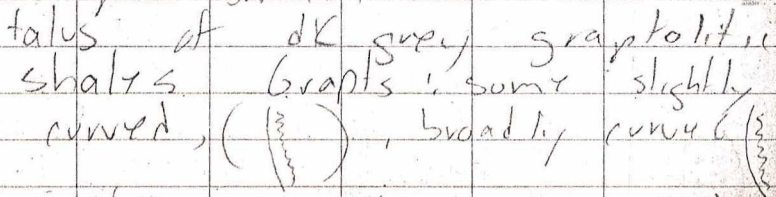 talus of dk grey graptolitic
shales Grapts: some slightly
curved, ( ), broadly curved (